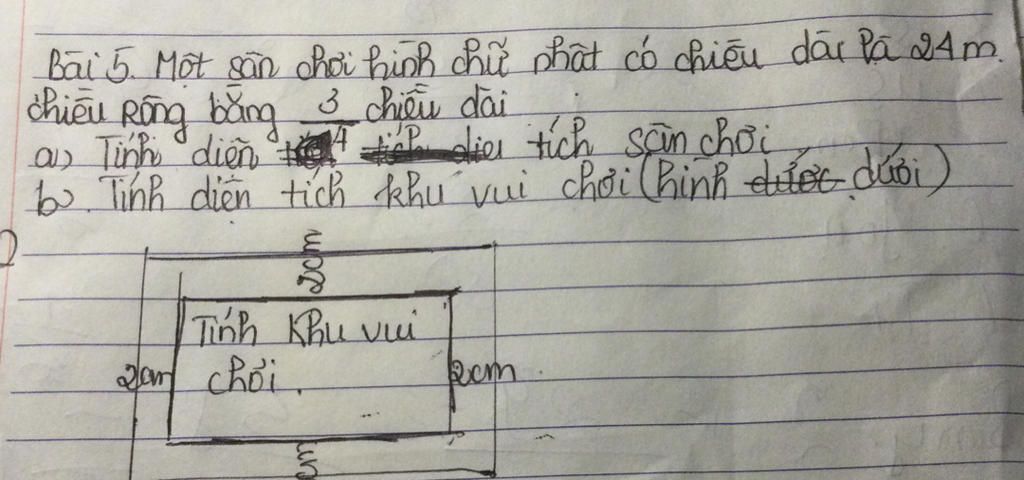 Bài 5. Một sân chơi hình chữ nhật có chiều dài là 24 m.
chiều Rộng bằng 3/4 chiều dài
a) Tính diện tích sân chơi
b). Tính diện tích khu vui chơi (hình dưới)
2cm
Tính Khu vui
2cm chơi. 2cm